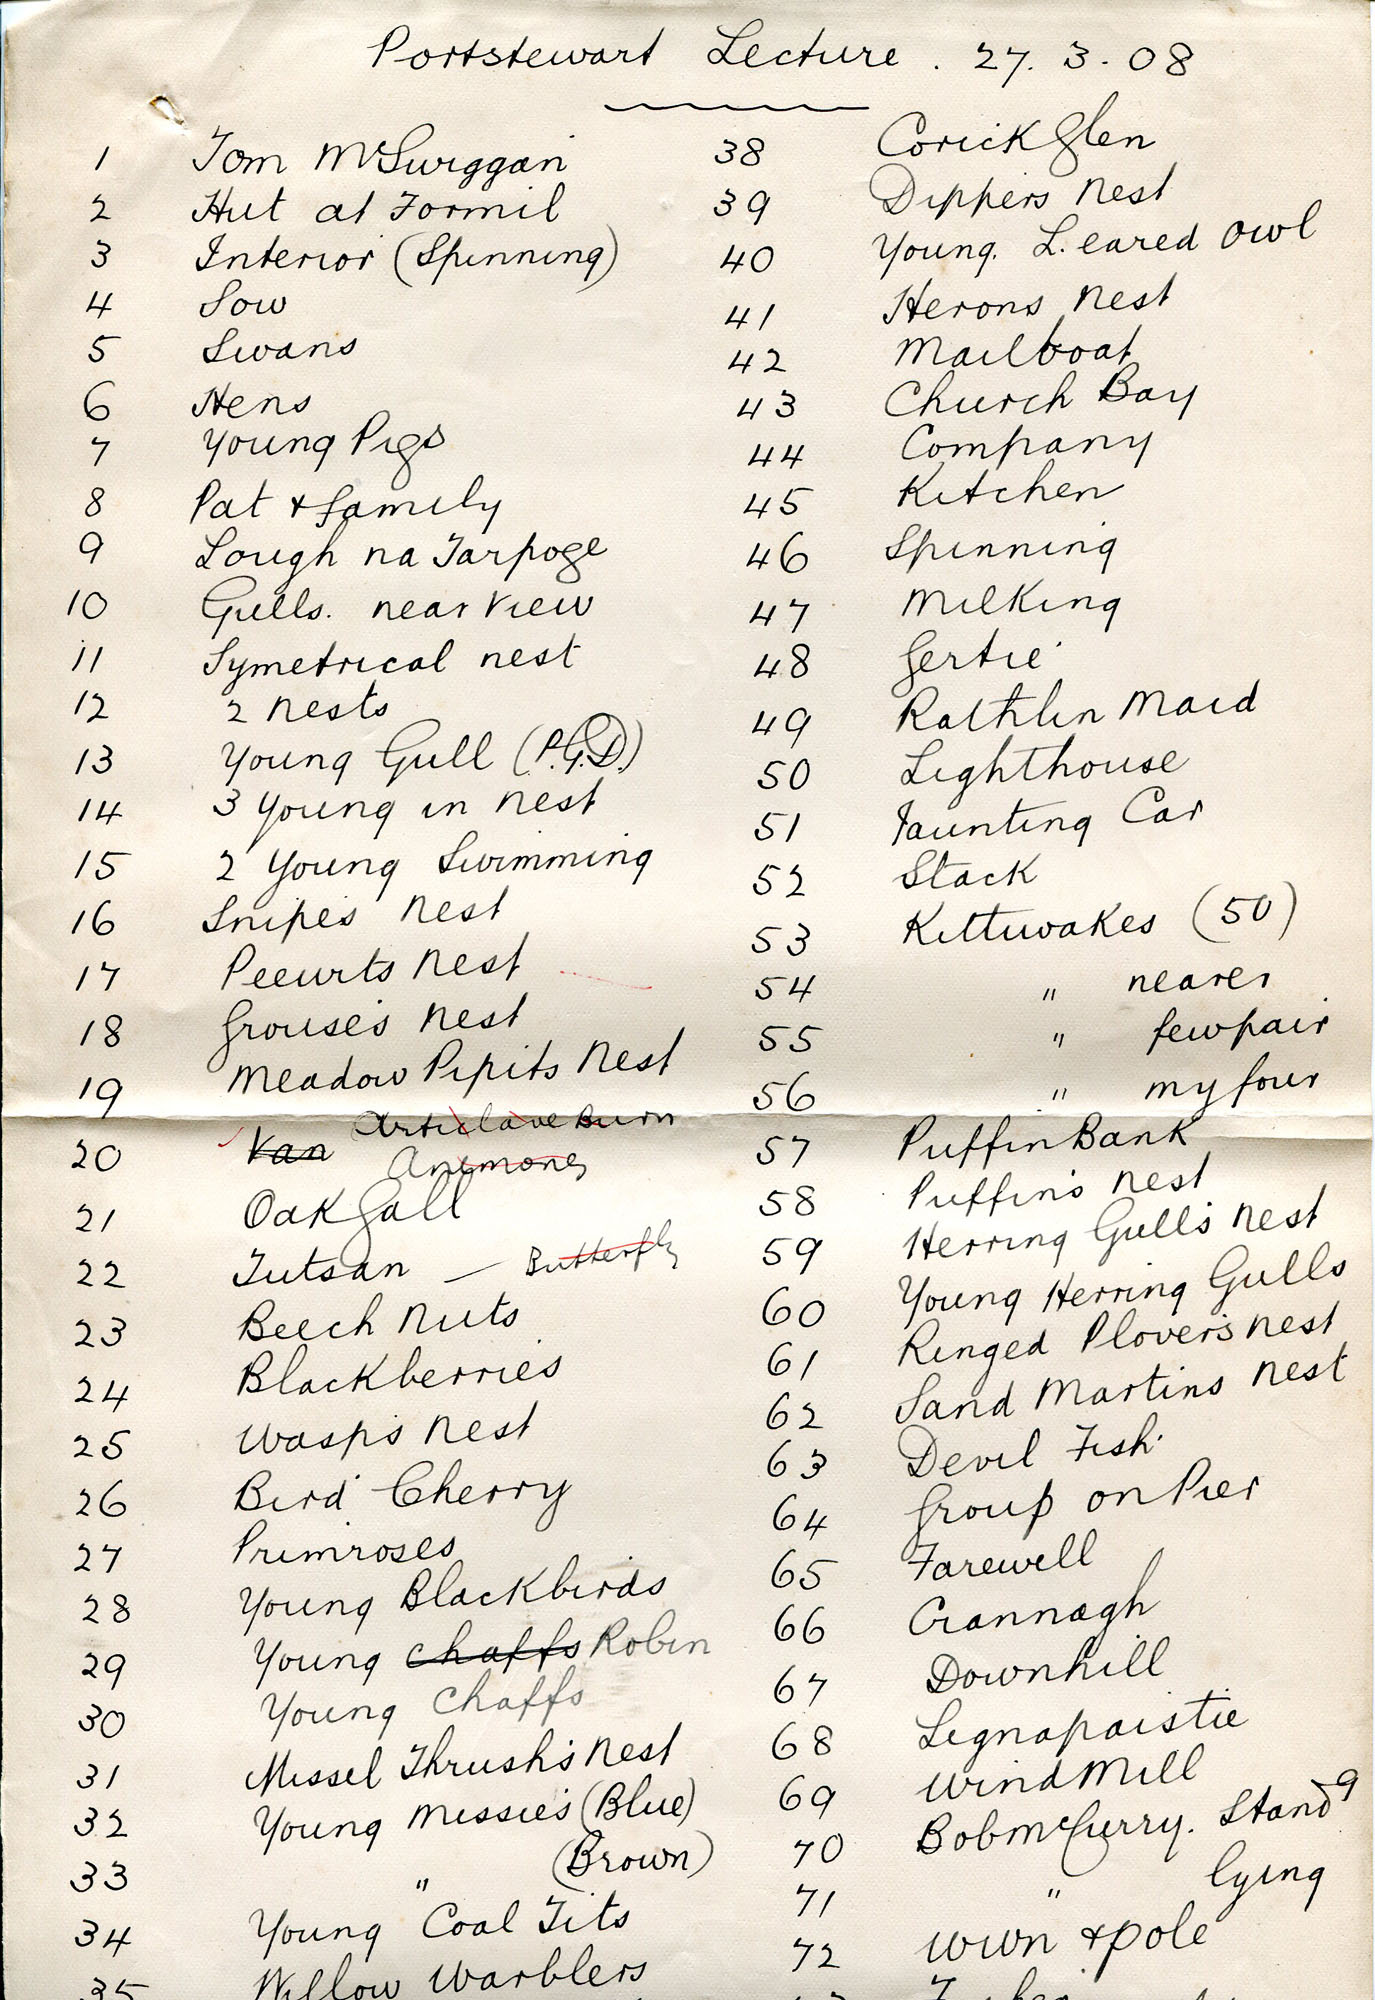 Portstewart Lecture . 27. 3. 08
1 Tom McSwiggan
2 Hut at Formil
3 Interior (Spinning)
4 Sow
5 Swans
6 Hens
7 Young Pigs
8 Pat & family
9 Lough na Tarpoge
10 Gulls. near View
11 Symetrical nest
12 2 nests
13 Young Gull (P.G.D.)
14 3 Young in nest
15 2 Young Swimming
16 Snipe's nest
17 Peewits nest
18 Grouse's nest
19 Meadow Pipits nest
Articlave Burn
20 Van Anemones
21 Oak Gall
22 Tutsan — Butterfly
23 Beech nuts
24 Blackberries
25 Wasp's nest
26 Bird Cherry
27 Primroses
28 Young Blackbirds
29 Young chaffs Robin
30 Young Chaffs
31 Missel Thrush's nest
32 Young Missie's (Blue)
33 " (Brown)
34 Young Coal Tits
35 Willow Warblers
38 Corick Glen
39 Dippers nest
40 Young. L. eared owl
41 Herons nest
42 Mailboat
43 Church Bay
44 Company
45 Kitchen
46 Spinning
47 Milking
48 Gertie
49 Rathlin Maid
50 Lighthouse
51 Jaunting Car
52 Stack
53 Kittiwakes (50)
54 " nearer
55 " few pair
56 " my four
57 Puffin Bank
58 Puffin's nest
59 Herring Gull's nest
60 Young Herring Gulls
61 Ringed Plover's nest
62 Sand Martins nest
63 Devil Fish
64 Group on Pier
65 Farewell
66 Crannagh
67 Downhill
68 Lignapaistie
69 Wind Mill
70 Bob McCurry. Standg
71 " lying
72 WWn & pole